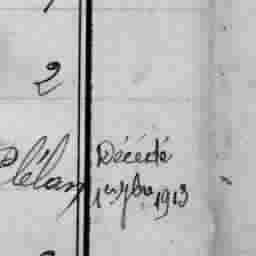 2
Plélan Décédé
1er 7bre 1913